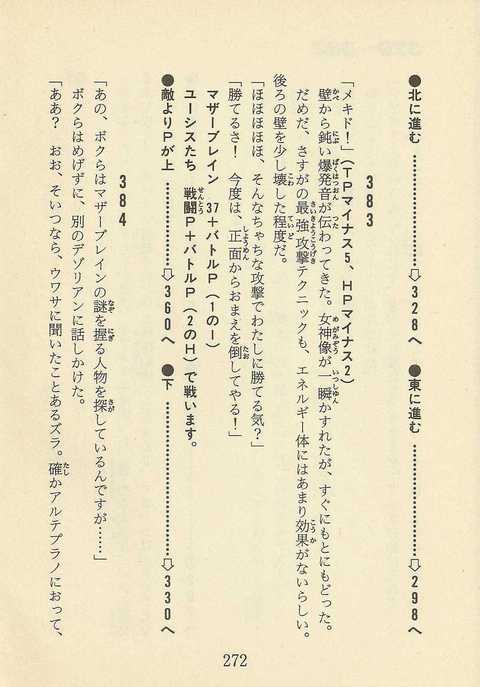 ●北に進む………………⇨328へ ●東に進む………………⇨298へ
383
「メギド！」(TPマイナス5、HPマイナス2)
壁から鈍い爆発音が伝わってきた。女神像が一瞬かすれたが、すぐにもとにもどった。
だめだ、さすがの最強攻撃テクニックも、エネルギー体にはあまり効果がないらしい。
後ろの壁を少し壊した程度だ。
「ほほほほほ、そんなちゃちな攻撃でわたしに勝てる気？」
「勝てるさ！　今度は、正面からおまえを倒してやる！」
マザーブレイン　37＋バトルP（1のI）
ユーシスたち　戦闘P＋バトルP（2のH）で戦います。
●敵よりPが上………………⇨360へ ●下………………⇨330へ
384
「あの、ボクらはマザーブレインの謎を握る人物を探しているんですが……」
ボクらはめげずに、別のデゾリアンに話しかけた。
「ああ？　おお、そいつなら、ウワサに聞いたことあるズラ。確かアルテプラノにおって、
272